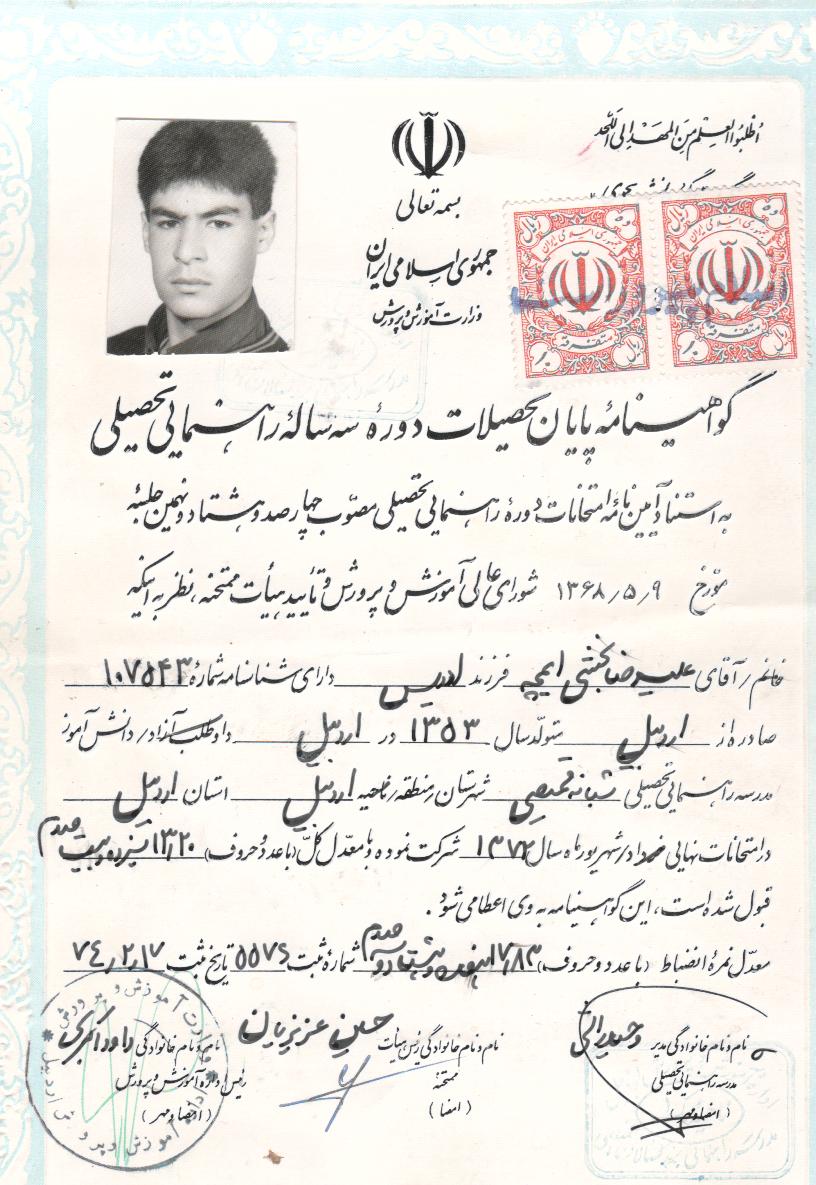 اُطْلُبُوا الْعِلْمَ مِنَ الْمَهْدِ اِلَی اللَّحَدِ
بسمه تعالی
جمهوری اسلامی ایران
وزارت آموزش و پرورش
جمهوری اسلامی ایران
ریال
متفرقه
جمهوری اسلامی ایران
ریال
متفرقه
گواهینامه پایان تحصیلات دورهٔ سه سالهٔ راهنمایی تحصیلی
به استناد آیین نامهٔ امتحانات دورهٔ راهنمایی تحصیلی مصوّب چهارصد و هشتاد و نهمین جلسهٔ
مورّخ ۱۳۶۸/۵/۹ شورای عالی آموزش و پرورش و تأیید هیأت ممتحنه، نظر به اینکه
خانم/آقای علیرضا بخشی ایمچه فرزند ادریس دارای شناسنامه شمارهٔ ۱۰۷۵۴۳
صادره از اردبیل متولّد سال ۱۳۵۳ در اردبیل داوطلب آزاد/دانش آموز
مدرسه راهنمایی تحصیلی شبانه شهرستان/منطقه/ناحیه اردبیل استان اردبیل
در امتحانات نهایی خرداد/شهریور ماه سال ۱۳۷۲ شرکت نموده و با معدّل کلّ (با عدد و حروف) ۱۳/۲۰ سیزده و بیست صدم
قبول شده است، این گواهینامه به وی اعطا می شود.
معدّل نمرهٔ انضباط (با عدد و حروف) ۱۷/۸۳ هفده و هشتاد و سه صدم شمارهٔ ثبت ۵۵۷۶ تاریخ ثبت ۷۴/۲/۱۷
نام و نام خانوادگی مدیر
مدرسه راهنمایی تحصیلی
(امضا و مهر)
نام و نام خانوادگی رئیس هیأت حسین عزیزیان
ممتحنهٔ
(امضا)
نام و نام خانوادگی داود اکبری
رئیس ادارهٔ آموزش و پرورش
(امضا و مهر)
وزارت آموزش و پرورش
اداره آموزش و پرورش اردبیل